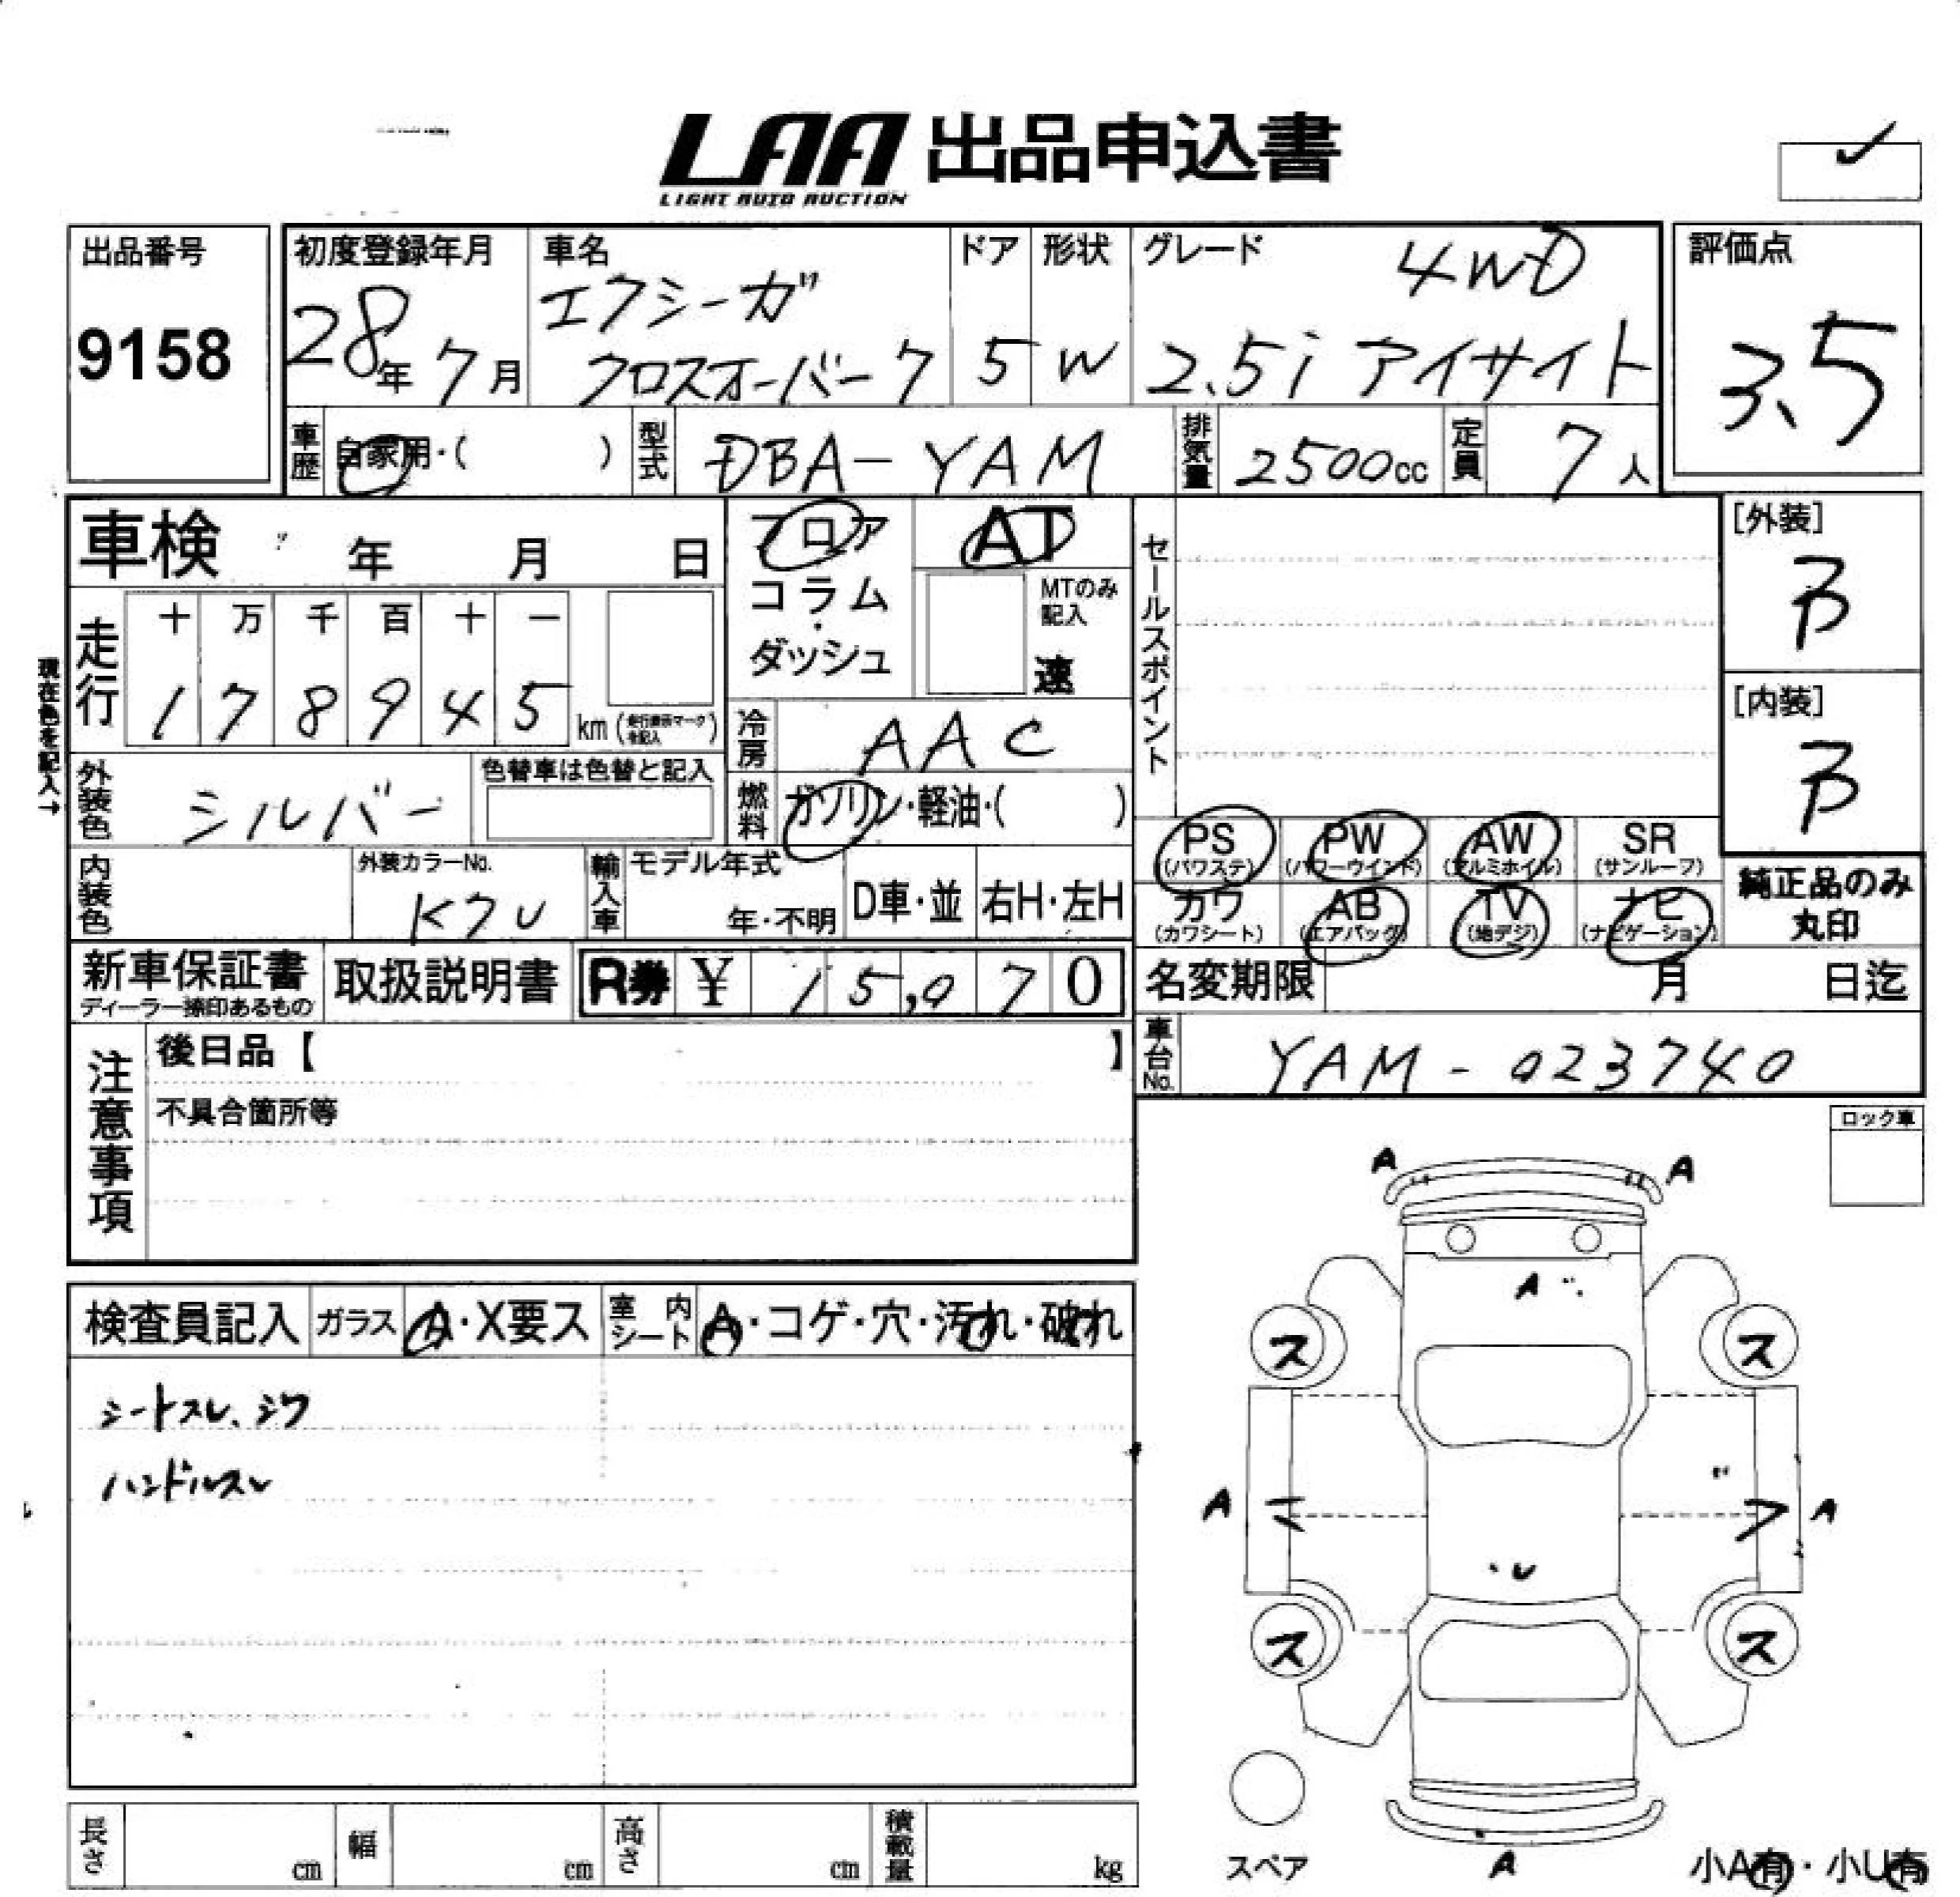 LAA 出品申込書
LIGHT AUTO AUCTION
出品番号
9158
初度登録年月
28年 7月
車名
エクシーガ
クロスオーバー7
ドア
5
形状
W
グレード
4WD
2.5i アイサイト
評価点
3.5
車歴
自家用・( )
型式
DBA-YAM
排気量
2500cc
定員
7人
車検 年 月 日
フロア
コラム
・
ダッシュ
AT
MTのみ
記入
速
セールスポイント
[外装]
B
[内装]
B
走行
十 万 千 百 十 一
1 7 8 9 4 5 km (走行表示マークを記入)
現在色を記入→
冷房
AAC
外装色
シルバー
色替車は色替と記入
燃料
ガソリン・軽油・( )
PS
(パワステ)
PW
(パワーウインド)
AW
(アルミホイル)
SR
(サンルーフ)
カワ
(カワシート)
AB
(エアバッグ)
TV
(地デジ)
ナビ
(ナビゲーション)
純正品のみ
丸印
内装色
外装カラーNo.
K7U
輸入車
モデル年式
年・不明
D車・並
右H・左H
新車保証書
ディーラー捺印あるもの
取扱説明書
R券 ¥ 15,070
名変期限 月 日迄
車台No.
YAM-023740
注意事項
後日品【 】
不具合箇所等
ロック車
検査員記入
ガラス
A・X要ス
室内シート
A・コゲ・穴・汚れ・破れ
シートスレ、シワ
ハンドルスレ
A
A
A
ス
ス
A
A
U
ス
ス
スペア
A
小A有・小U有
長さ cm
幅 cm
高さ cm
積載量 kg